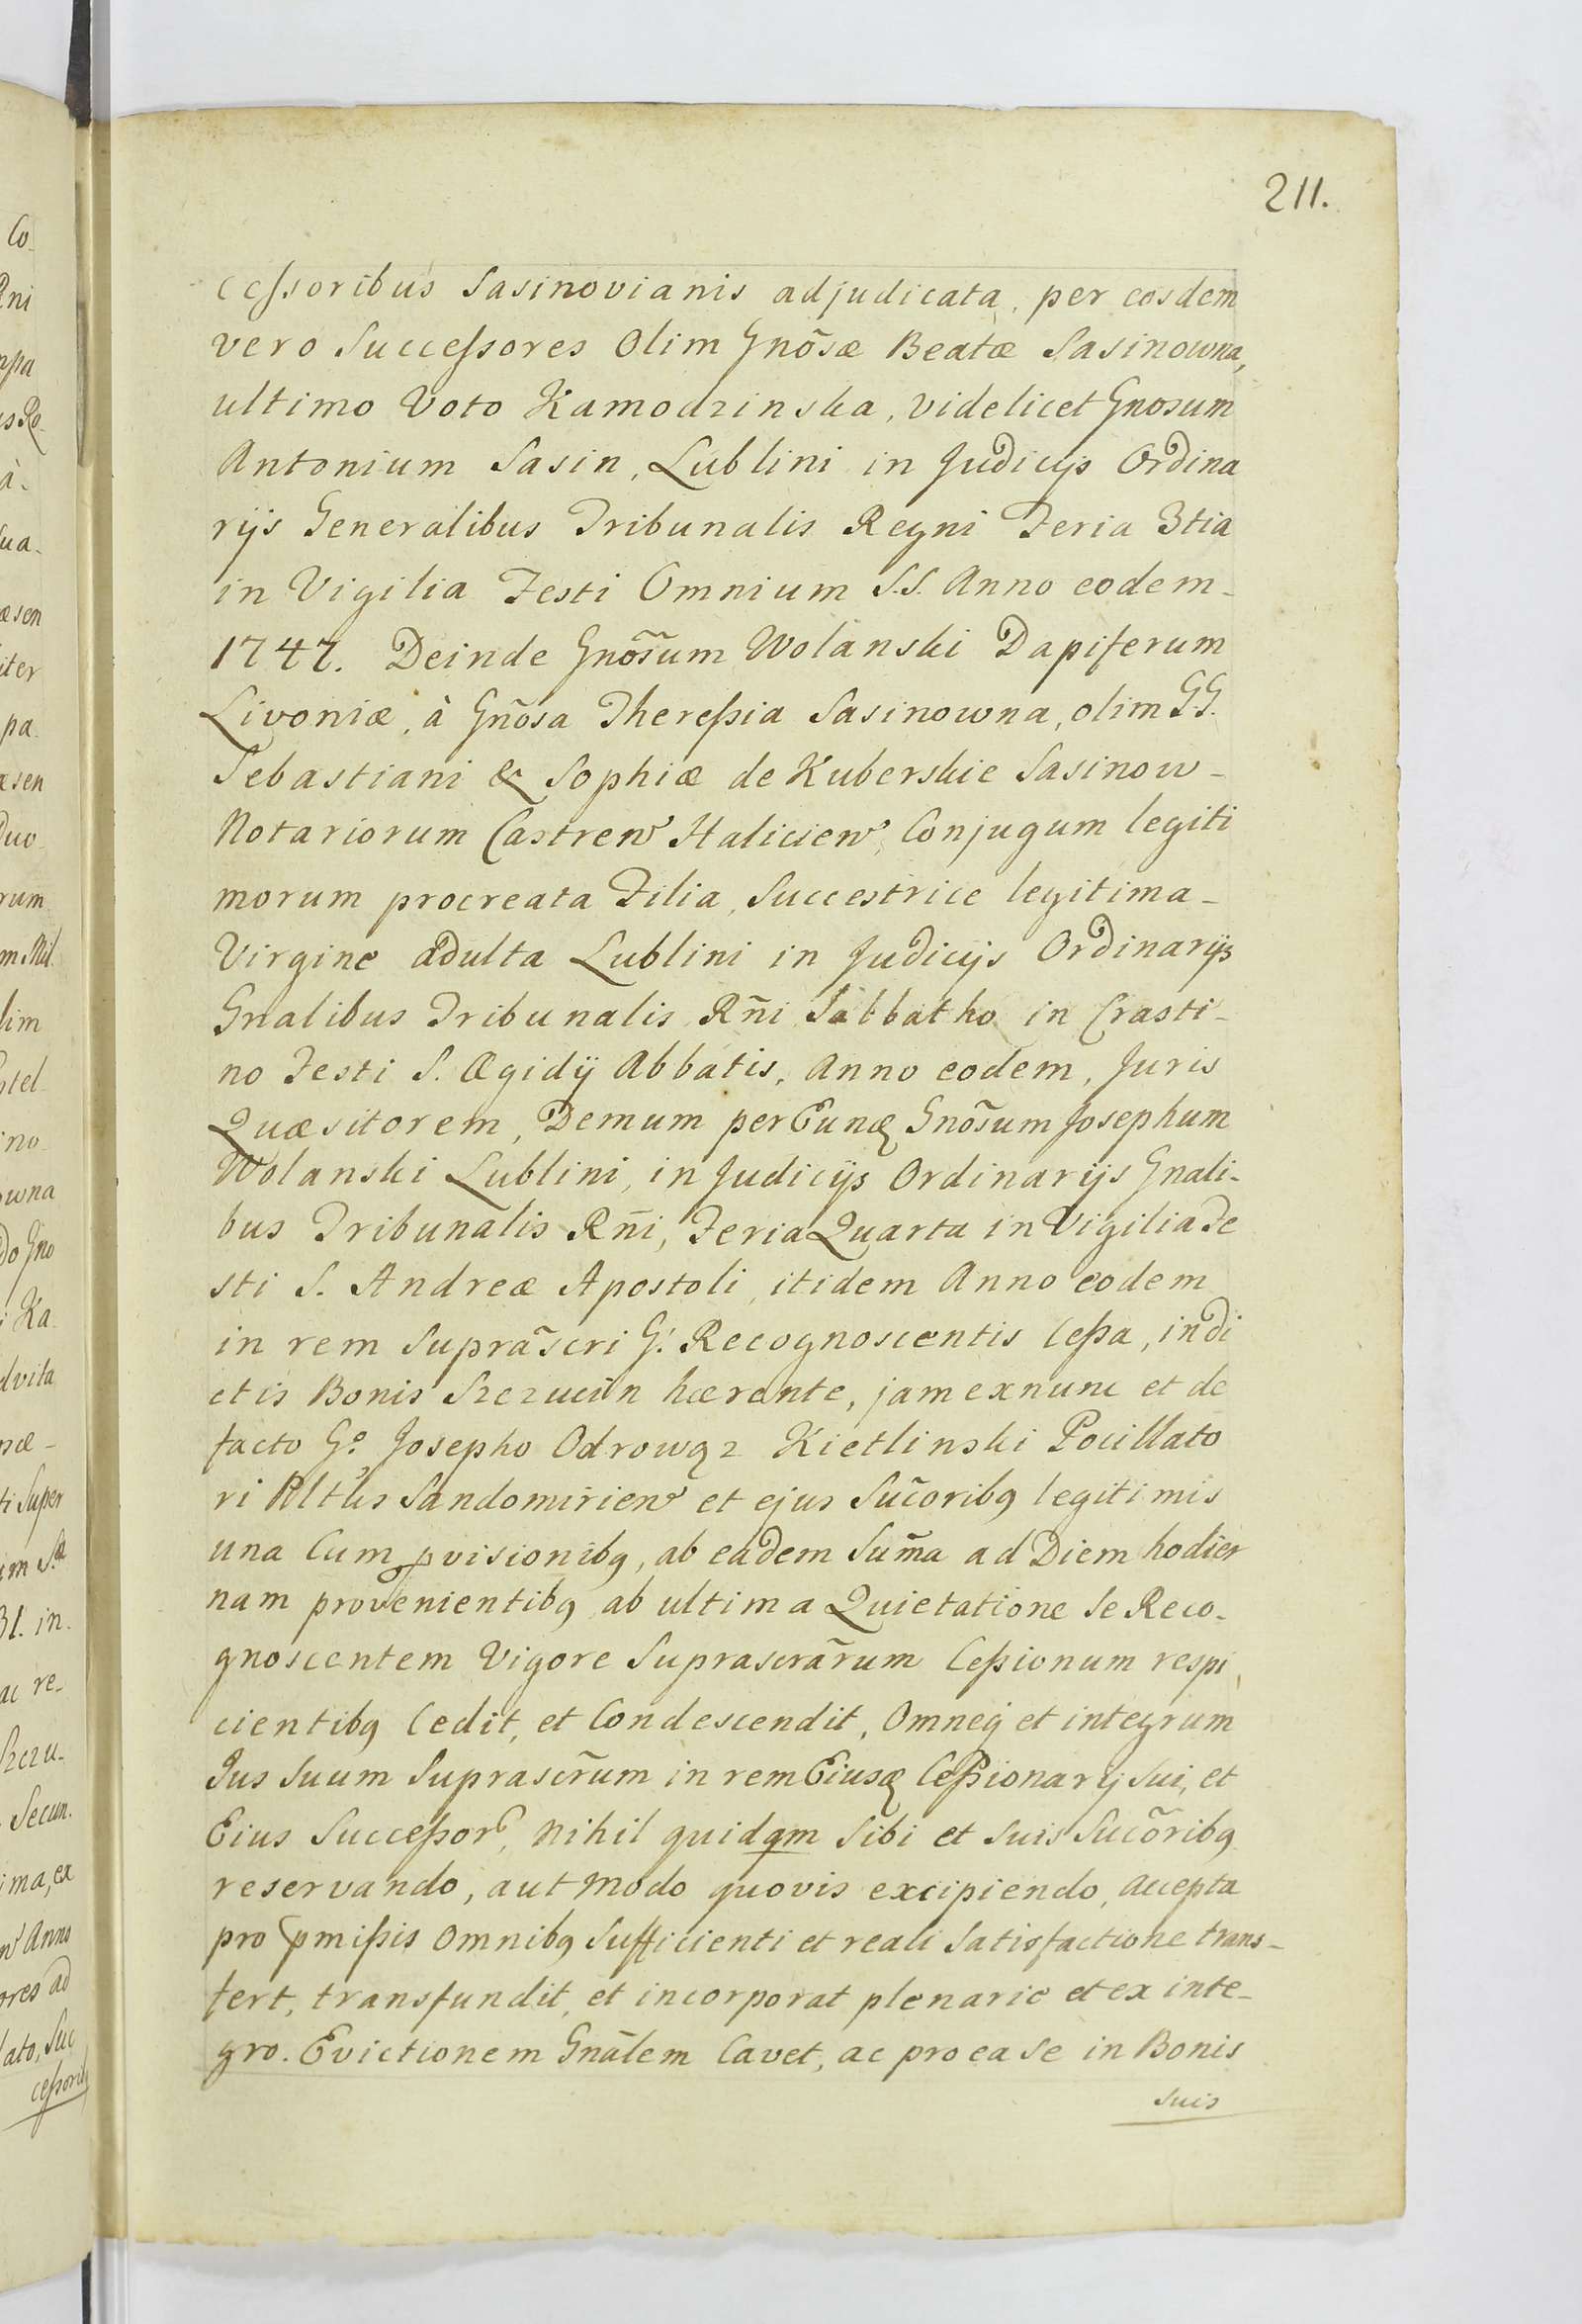 211.
cessoribus Sasinovianis adjudicata, per eosdem
vero Successores Olim Gnõsæ Beatæ Sasinowna,
ultimo Voto Kamodzinska, videlicet Gnosum
Antonium Sasin, Lublini in Judicijs Ordina
rijs Generalibus Tribunalis Regni Feria 3tia
in Vigilia Festi Omnium S.S. Anno eodem-
1747. Deinde Gnõsum Wolanski Dapiferum
Livoniæ, à Gñosa Theressia Sasinowna, olim G.G.
Sebastiani & Sophiæ de Kuberskie Sasinow-
Notariorum Castren Halicien, Conjugum legiti
morum procreata Filia, Succestrice legitima-
Virgine adulta Lublini in Judicijs Ordinarijs
Gnalibus Tribunalis Rñi Sabbatho in Crasti-
no Festi S. Ægidij Abbatis, Anno eodem, Juris
Quæsitorem, Demum per Eunq Gnõsum Josephum
Wolanski Lublini, in Judicijs Ordinarijs Gnali-
bus Tribunalis Rñi, Feria Quarta in Vigilia Fe
sti S. Andreæ Apostoli, itidem Anno eodem
in rem Suprãscri G: Recognoscentis Cessa, in di
ctis Bonis Szczucin hærente, jam exnunc et de
facto G.o Josepho Odrowąz Kietlinski Pocillato
ri Pltus Sandomirien et ejus Succ̃oribq legitimis
una Cum pvisionibq, ab eadem Sum̃a ad Diem hodier
nam provenientibq ab ultima Quietatione Se Reco-
gnoscentem Vigore Suprascrãrum Cessionum respi
cientibq Cedit, et Condescendit, Omneq et integrum
Jus Suum Suprascr̃um in rem Eiusq Cessionarij Sui, et
Eius Successor, Nihil quidqm Sibi et Suis Sucõribq
reservando, aut Modo quovis excipiendo, accepta
pro pmissis Omnibq Sufficienti et reali Satisfactione trans-
fert, transfundit, et incorporat plenarie et ex inte-
gro. Evictionem Gnãlem Cavet, ac pro ea Se in Bonis
Suis